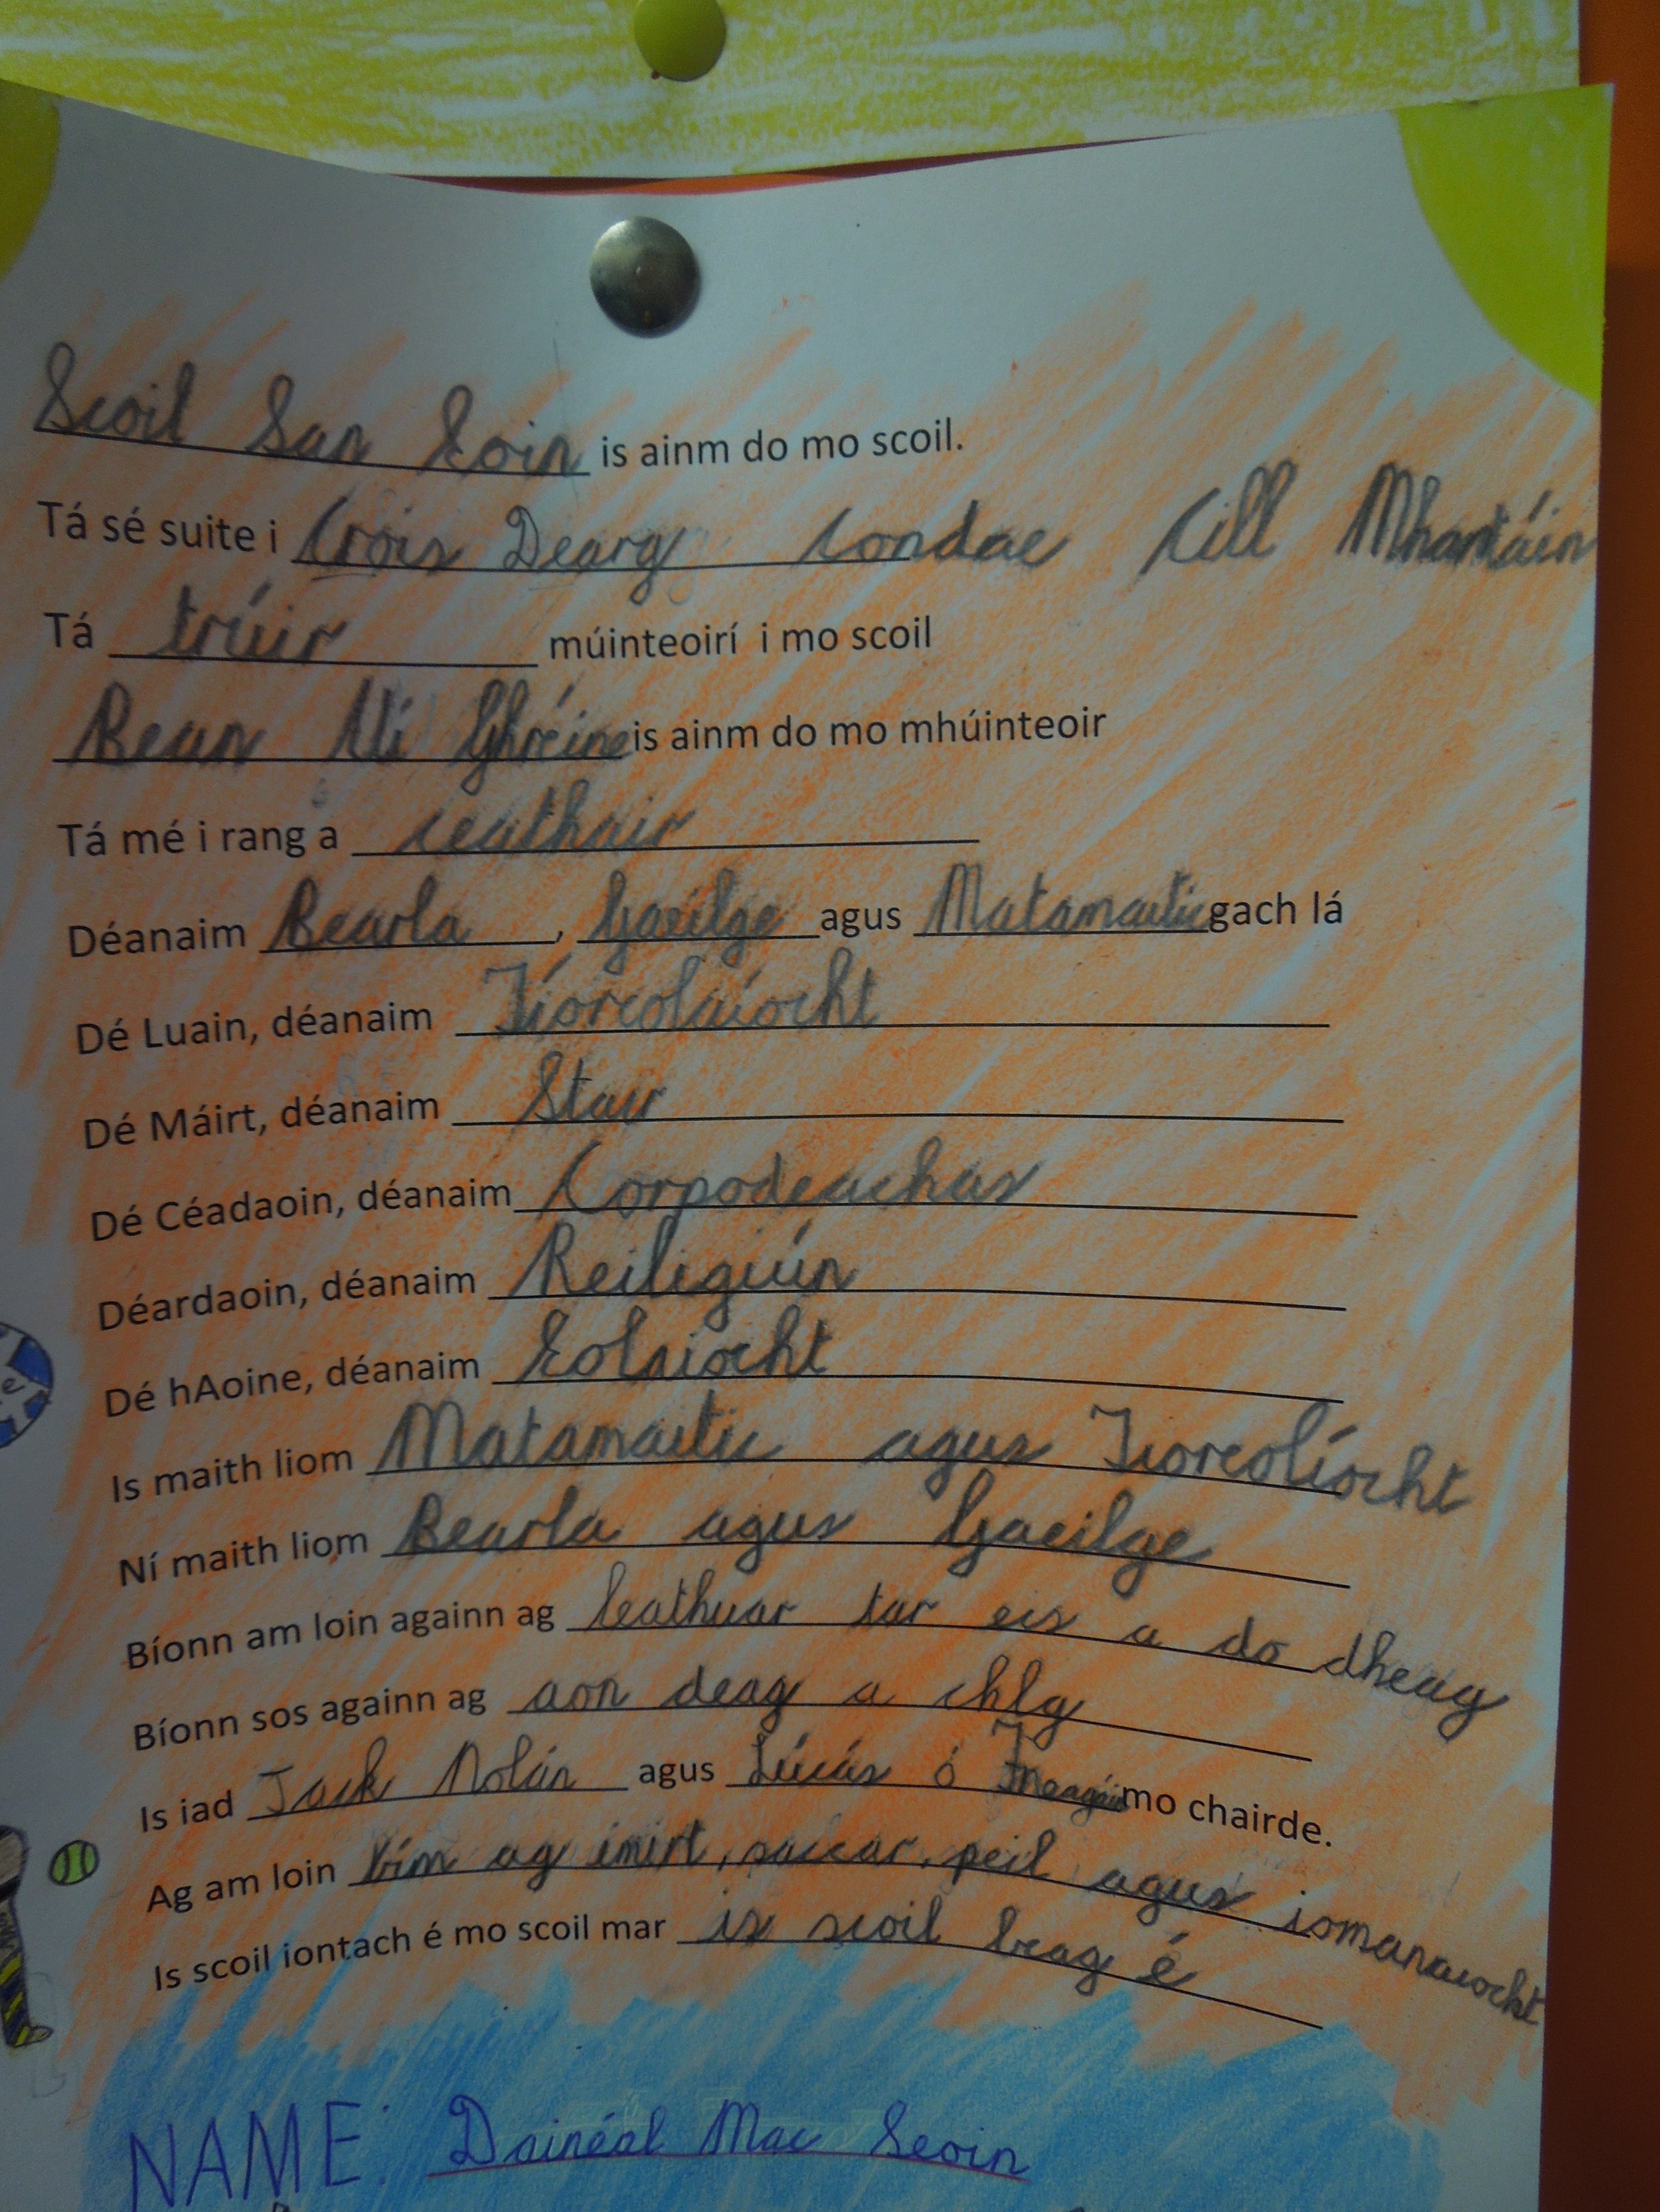 Scoil San Eoin is ainm do mo scoil.
Tá sé suite i Crois Dearg Condae Cill Mhantáin
Tá trúir múinteoirí i mo scoil
Bean Uí Ghréine is ainm do mo mhúinteoir
Tá mé i rang a ceathair
Déanaim Bearla, Gaeilge agus Matamaitic gach lá
Dé Luain, déanaim Tíoreolaíocht
Dé Máirt, déanaim Stair
Dé Céadaoin, déanaim Corpodeachas
Déardaoin, déanaim Reiligiún
Dé hAoine, déanaim Eolaiocht
Is maith liom Matamaitic agus Tioreolíocht
Ní maith liom Bearla agus Gaeilge
Bíonn am loin againn ag leathuar tar eis a do dheag
Bíonn sos againn ag aon deag a chlg
Is iad Jack Nolán agus Lúcás ó mo chairde.
Ag am loin bím ag imirt, saccar, peil agus iomanaiocht
Is scoil iontach é mo scoil mar is scoil beag é
NAME: Dainéal Mac Seoin